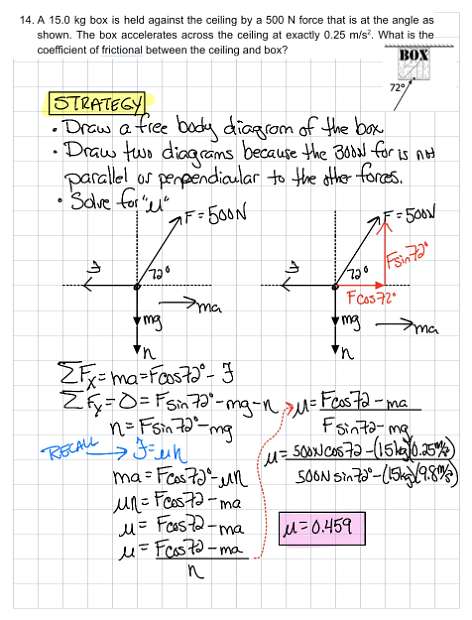 14. A 15.0 kg box is held against the ceiling by a 500 N force that is at the angle as
shown. The box accelerates across the ceiling at exactly 0.25 m/s². What is the
coefficient of frictional between the ceiling and box?
BOX
72°
STRATEGY
• Draw a free body diagram of the box
• Draw two diagrams because the 300N for is not
parallel or perpendicular to the other forces.
• Solve for "μ"
F = 500N
F = 500N
Fsin72°
ℱ
72°
ℱ
72°
Fcos72°
ma
mg
mg
ma
n
n
ΣFx = ma = Fcos72° - ℱ
ΣFy = 0 = Fsin72° - mg - n
n = Fsin72° - mg
RECALL → ℱ = μn
ma = Fcos72° - μn
μn = Fcos72 - ma
μ = Fcos72 - ma
μ = Fcos72 - ma
n
μ = Fcos72 - ma
Fsin72 - mg
μ = 500Ncos72 - (15kg)(0.25m/s²)
500Nsin72° - (15kg)(9.8m/s²)
μ = 0.459